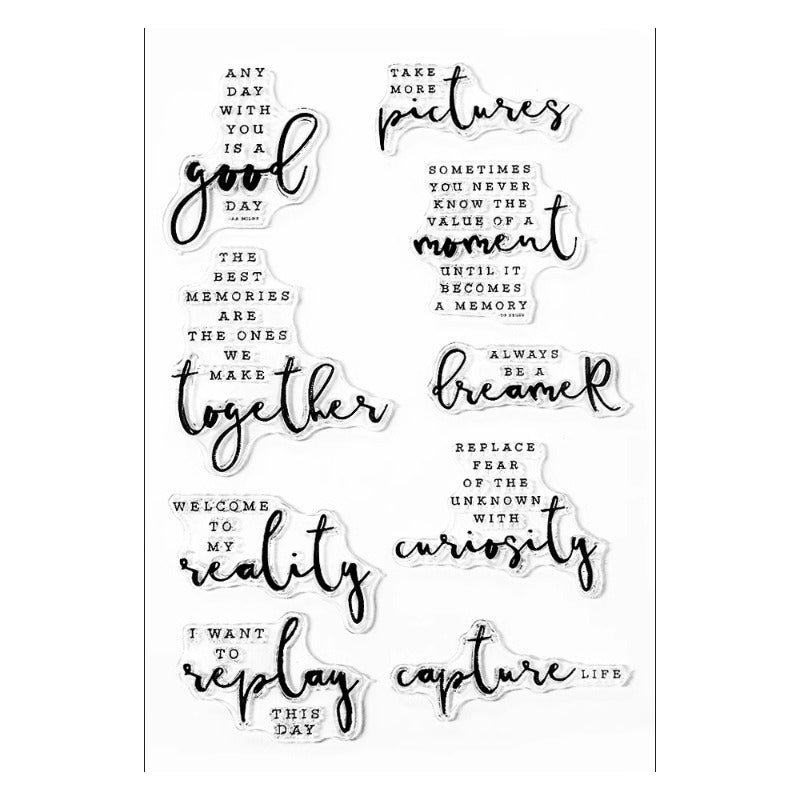 ANY
DAY
WITH
YOU
IS A
good
DAY
-AA MILNE
TAKE
MORE
pictures
SOMETIMES
YOU NEVER
KNOW THE
VALUE OF A
moment
UNTIL IT
BECOMES
A MEMORY
-DR SEUSS
THE
BEST
MEMORIES
ARE
THE ONES
WE
MAKE
together
ALWAYS
BE A
dreameR
REPLACE
FEAR
OF THE
UNKNOWN
WITH
curiosity
WELCOME
TO
MY
reality
I WANT
TO
replay
THIS
DAY
capture LIFE